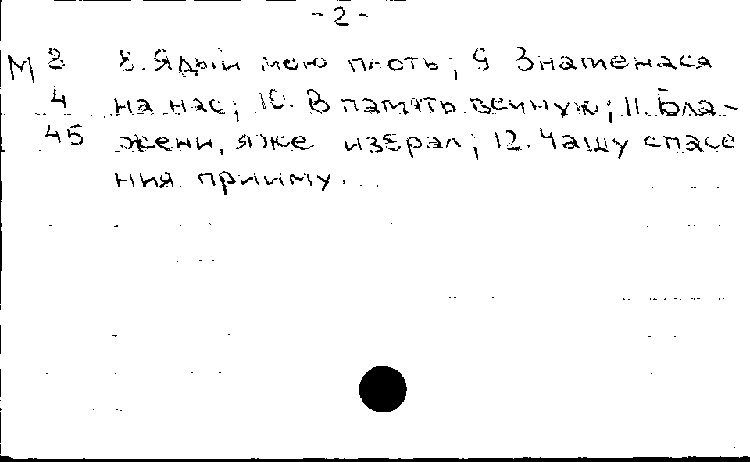 - 2 -
М 8 8. Ядый мою плоть; 9 Знаменася
4 на нас; 10. В память вечную; 11. Бла-
45 жени, яже избрал; 12. Чашу спасе
ния прииму.